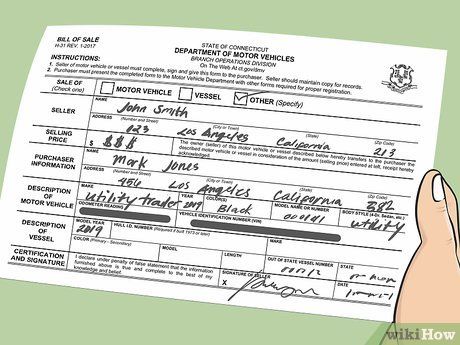 BILL OF SALE
H-31 REV. 1-2017
STATE OF CONNECTICUT
DEPARTMENT OF MOTOR VEHICLES
BRANCH OPERATIONS DIVISION
On The Web At ct.gov/dmv
INSTRUCTIONS:
1. Seller of motor vehicle or vessel must complete, sign and give this form to the purchaser. Seller should maintain copy for records.
2. Purchaser must present the completed form to the Motor Vehicle Department with other forms required for proper registration.
SALE OF (Check one) MOTOR VEHICLE VESSEL OTHER (Specify)
SELLER
NAME
John Smith
ADDRESS (Number and Street) (City or Town) (State) (Zip Code)
123 Los Angeles California 213
SELLING PRICE
$ $$$
The owner (seller) of this motor vehicle or vessel described below hereby transfers to the purchaser the
described motor vehicle or vessel in consideration of the amount (selling price) entered at left, receipt hereby
acknowledged.
PURCHASER INFORMATION
NAME
Mark Jones
ADDRESS (Number and Street) (City or Town) (State) (Zip Code)
456 Los Angeles California
DESCRIPTION OF MOTOR VEHICLE
MAKE YEAR COLOR(S) MODEL NAME OR NUMBER BODY STYLE (4-Dr. Sedan, etc.)
utility trader Black utility
ODOMETER READING VEHICLE IDENTIFICATION NUMBER (VIN)
DESCRIPTION OF VESSEL
MODEL YEAR HULL I.D. NUMBER
2019
COLOR (Primary - Secondary) MODEL LENGTH OUT OF STATE VESSEL NUMBER STATE
CERTIFICATION AND SIGNATURE
I declare under penalty of false statement that the information
furnished above is true and complete to the best of my
knowledge and belief.
SIGNATURE OF SELLER DATE
X
wikiHow